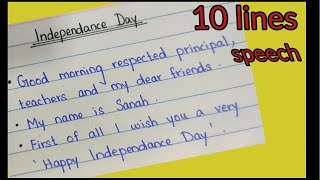 Independance Day
10 lines
speech
• Good morning respected principal,
teachers and my dear friends.
• My name is Sanah.
• First of all I wish you a very
'Happy Independance Day'.